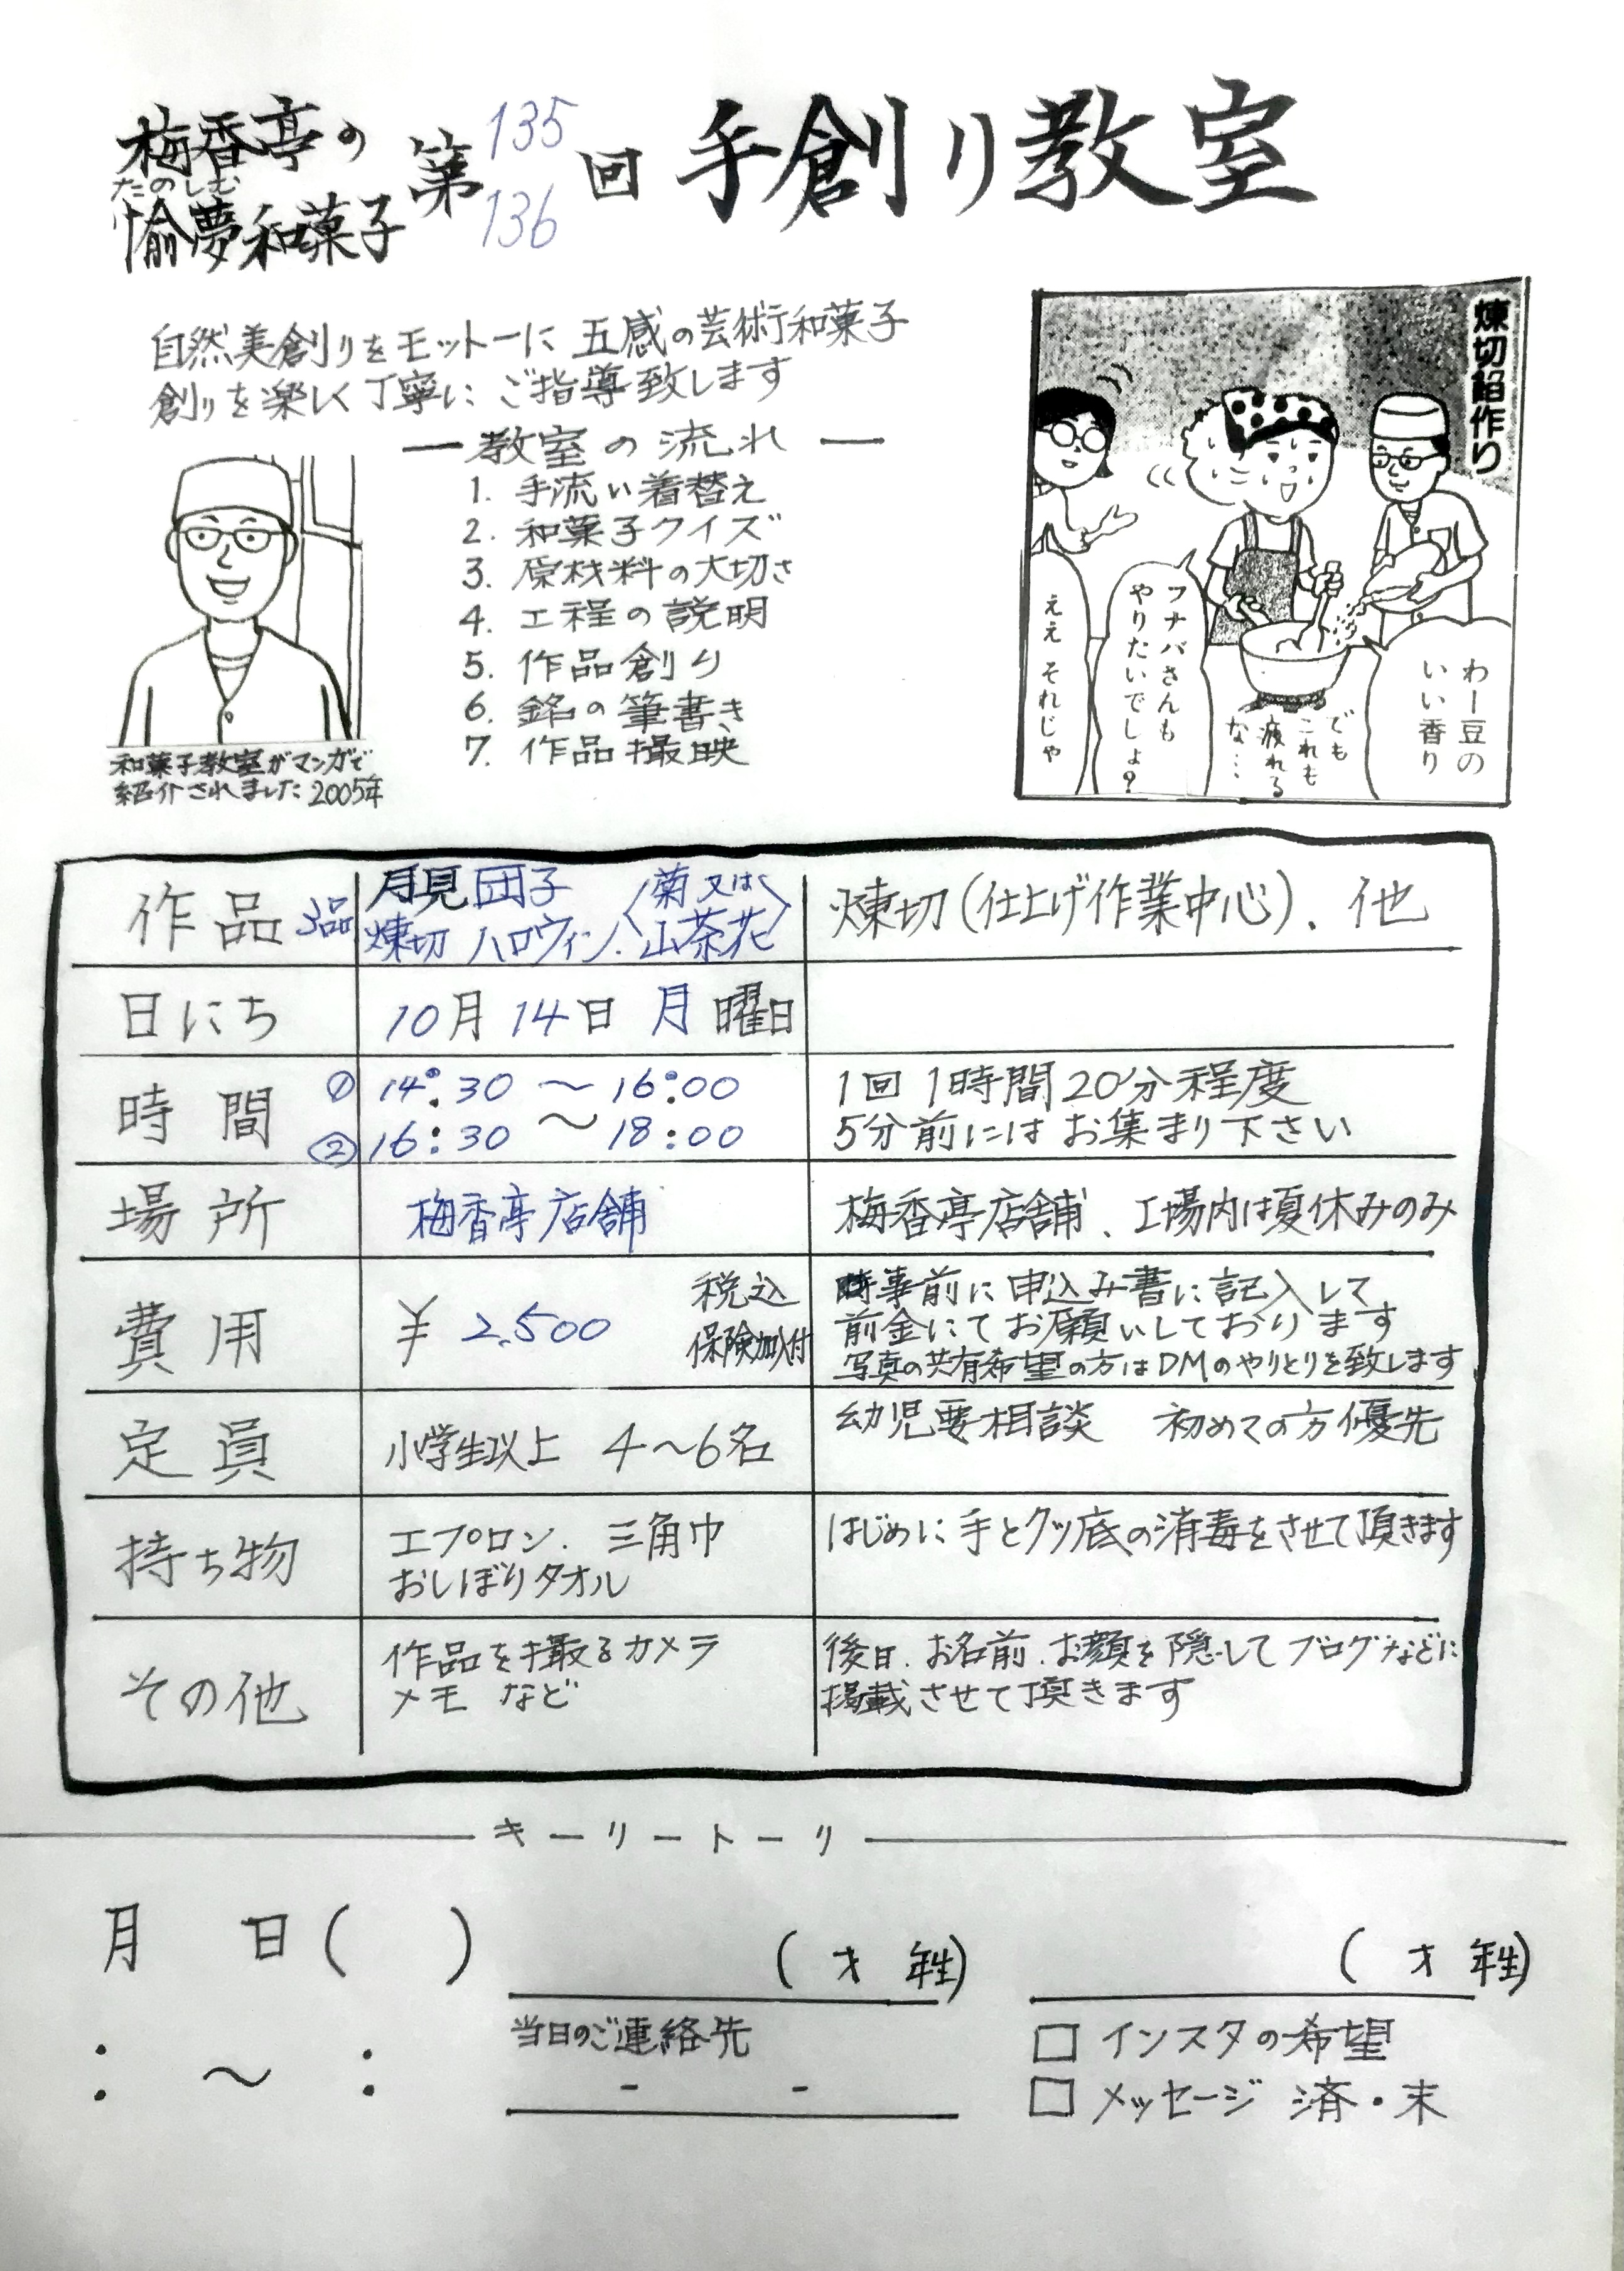 梅香亭の
たのしむ
愉夢和菓子
第135 136回 手創り教室
自然美創りをモットーに 五感の芸術和菓子
創りを楽しく丁寧に ご指導致します
ー教室の流れー
1. 手洗い着替え
2. 和菓子クイズ
3. 原材料の大切さ
4. 工程の説明
5. 作品創り
6. 銘の筆書き
7. 作品撮映
和菓子教室がマンガで
紹介されました 2005年
煉切餡作り
わー豆の
いい香り
でも
これも
疲れる
な…
フナバさんも
やりたいでしょ?
ええ それじゃ
作品 3品
月見団子
煉切 ハロウィン. 〈菊又は山茶花〉
煉切(仕上げ作業中心)、他
日にち
10月14日 月曜日
時間
① 14:30 〜 16:00
② 16:30 〜 18:00
1回 1時間20分程度
5分前には お集まり下さい
場所
梅香亭店舗
梅香亭店舗、工場内は夏休みのみ
費用
¥ 2,500
税込
保険加入付
事前に申込み書に記入して
前金にてお願いしております
写真の共有希望の方はDMのやりとりを致します
定員
小学生以上 4〜6名
幼児要相談 初めての方優先
持ち物
エプロン. 三角巾
おしぼりタオル
はじめに 手とクツ底の消毒をさせて頂きます
その他
作品を撮るカメラ
メモ など
後日. お名前. お顔を隠してブログなどに
掲載させて頂きます
キーリートーリ
月 日( )
: 〜 :
( 才 年生)
当日のご連絡先
- -
( 才 年生)
□ インスタの希望
□ メッセージ 済・末